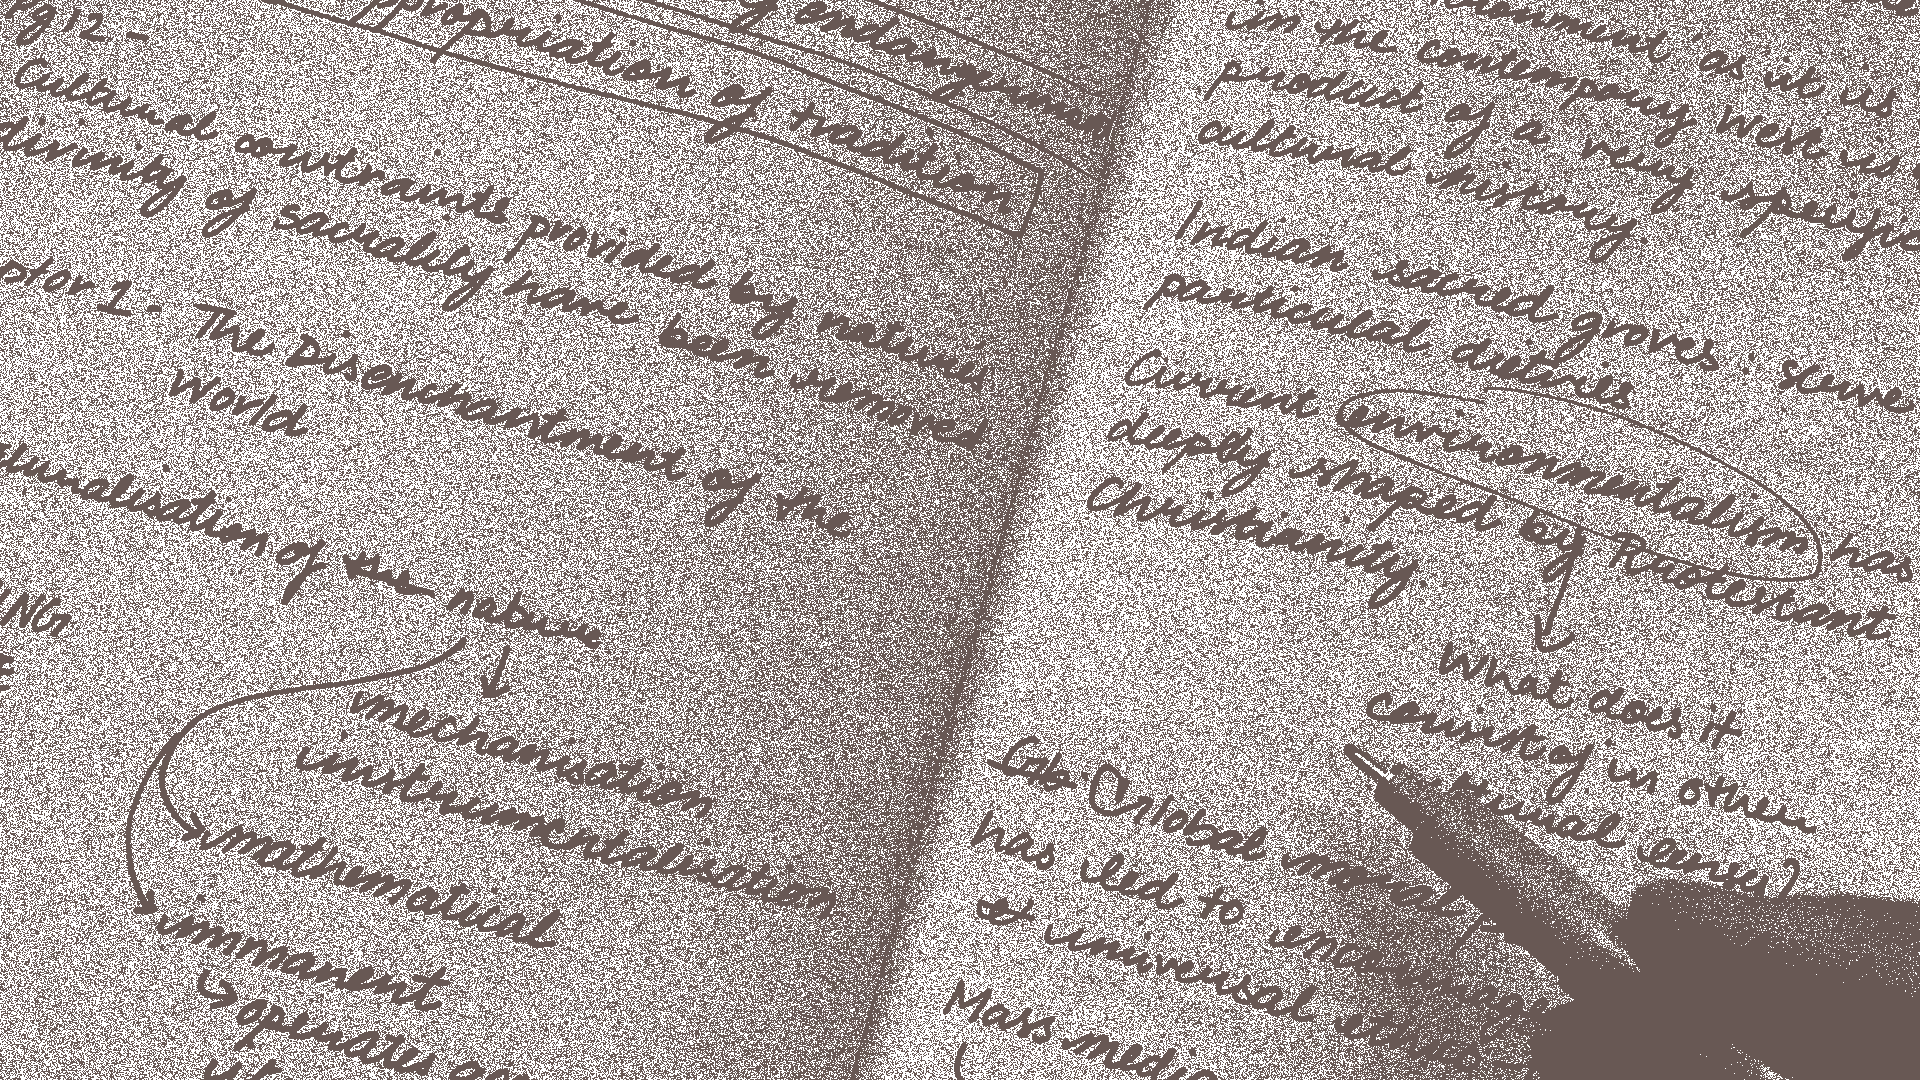 of endangerment
appropriation of tradition
Pg 12 -
Cultural constraints provided by natures
divinity of sacrality have been removed
1 - The Disenchantment of the
World
of the nature
mechanisation
instrumentalisation
mathematical
immanent
operates
as it is
in the contemporary West is
product of a very specific
cultural history.
Indian sacred groves : serve
particular details
Current environmentalism has
deeply shaped by Protestant
Christianity.
What does it
consist of in other
Glob. Global
has led to
et universal
Mass media